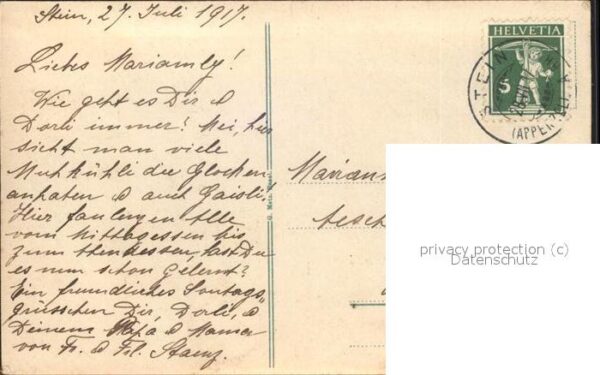 Stein, 27. Juli 1917.
Liebes Mariannly!
Wie geht es Dir &
Dorli immer? Mei, hier
sieht man viele
Mutkühli die Glocken
anhaten & auch Gaisli!
Hier faulenzen Alle
vom Mittagessen bis
zum Abendessen, hast Du
es nun schon gelernt?
Ein freundliches Sontags-
grüsschen Dir, Dorli, &
Deinem Papa & Mama
von Fr. & Frl. Stanz.
HELVETIA
5
STEIN
(APPENZELL)
G. Metz, Basel
Mariann
Aesch
privacy protection (c)
Datenschutz